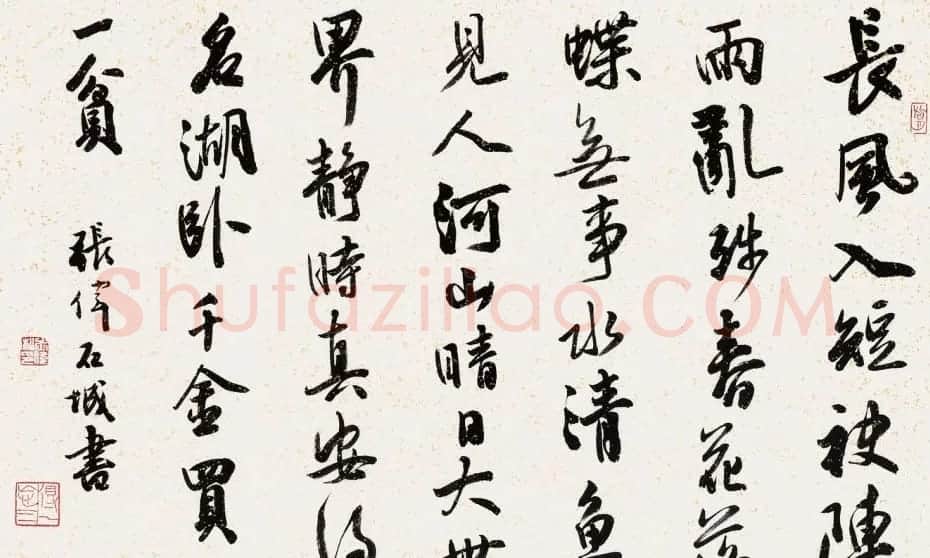 長風入短袂陳
雨亂殊春花落
蝶無事水清魚
見人河山晴日大世
界静時真安得
名湖卧千金買
一貧
張偉石城書
Shufaziliao.COM